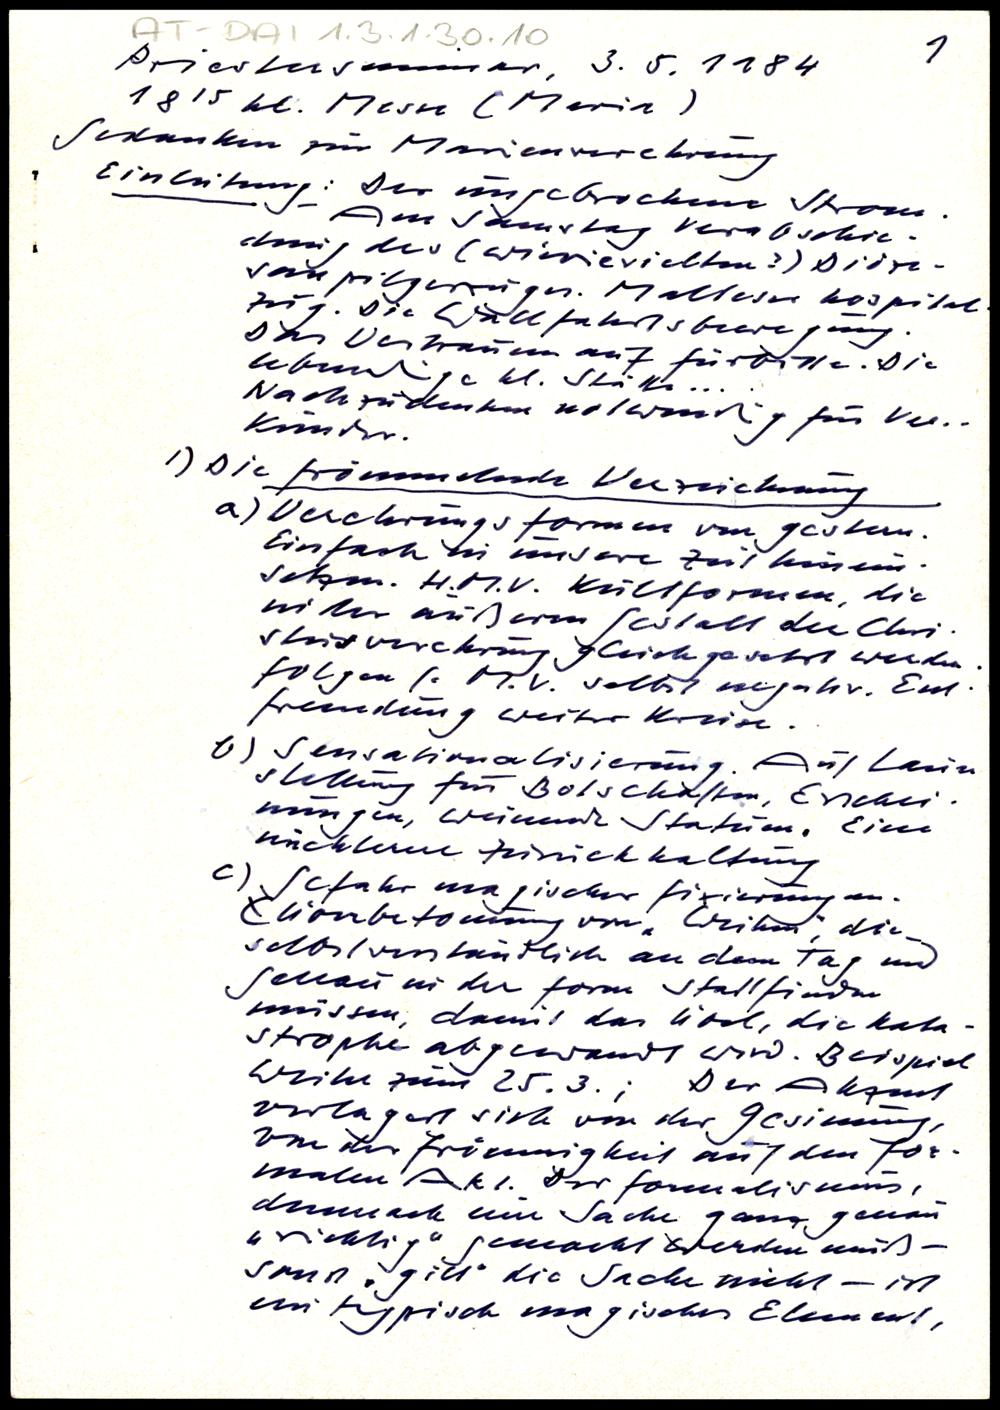 AT-DAI 1.3.1.30.10
1
Priesterseminar, 3. 5. 1984
18 15 hl. Messe (Maria)
Gedanken zur Marienverehrung
Einleitung: Der ungebrochene Strom.
Am Samstag Verabschie-
dung des (wievielten?) Diöze-
sanpilgerzuges. Malteser hospital-
zug. Die Wallfahrtsbewegung.
Das Vertrauen auf Fürbitte. Die
lebendige hl. Stätte...
Nachzudenken notwendig für Ver-
künder.
1) Die frömmelnde Verzeichnung
a) Verehrungsformen von gestern.
Einfach in unsere Zeit hinein-
setzen. H.M.V. Kultformen, die
in der äußeren Gestalt der Chri-
stusverehrung gleichgesetzt werden.
Folgen f. M.V. selbst negativ. Ent-
fremdung weiter Kreise.
b) Sensationalisierung. Auf
stellung für Botschaften, Erschei-
nungen, weinende Statuen. Eine
nüchterne Zurückhaltung
c) Gefahr magischer Fixierungen.
Überbetonung von "Weihen", die
selbstverständlich an dem Tag und
genau in der Form stattfinden
müssen, damit das Übel, die Kata-
strophe abgewandt wird. Beispiel
Weihe zum 25. 3.; Der Akzent
verlagert sich von der Gesinnung,
von der Frömmigkeit auf den for-
malen Akt. Der Formalismus,
demnach eine Sache ganz genau
"richtig" gemacht werden muß -
sonst "gilt" die Sache nicht - ist
ein typisch magisches Element,